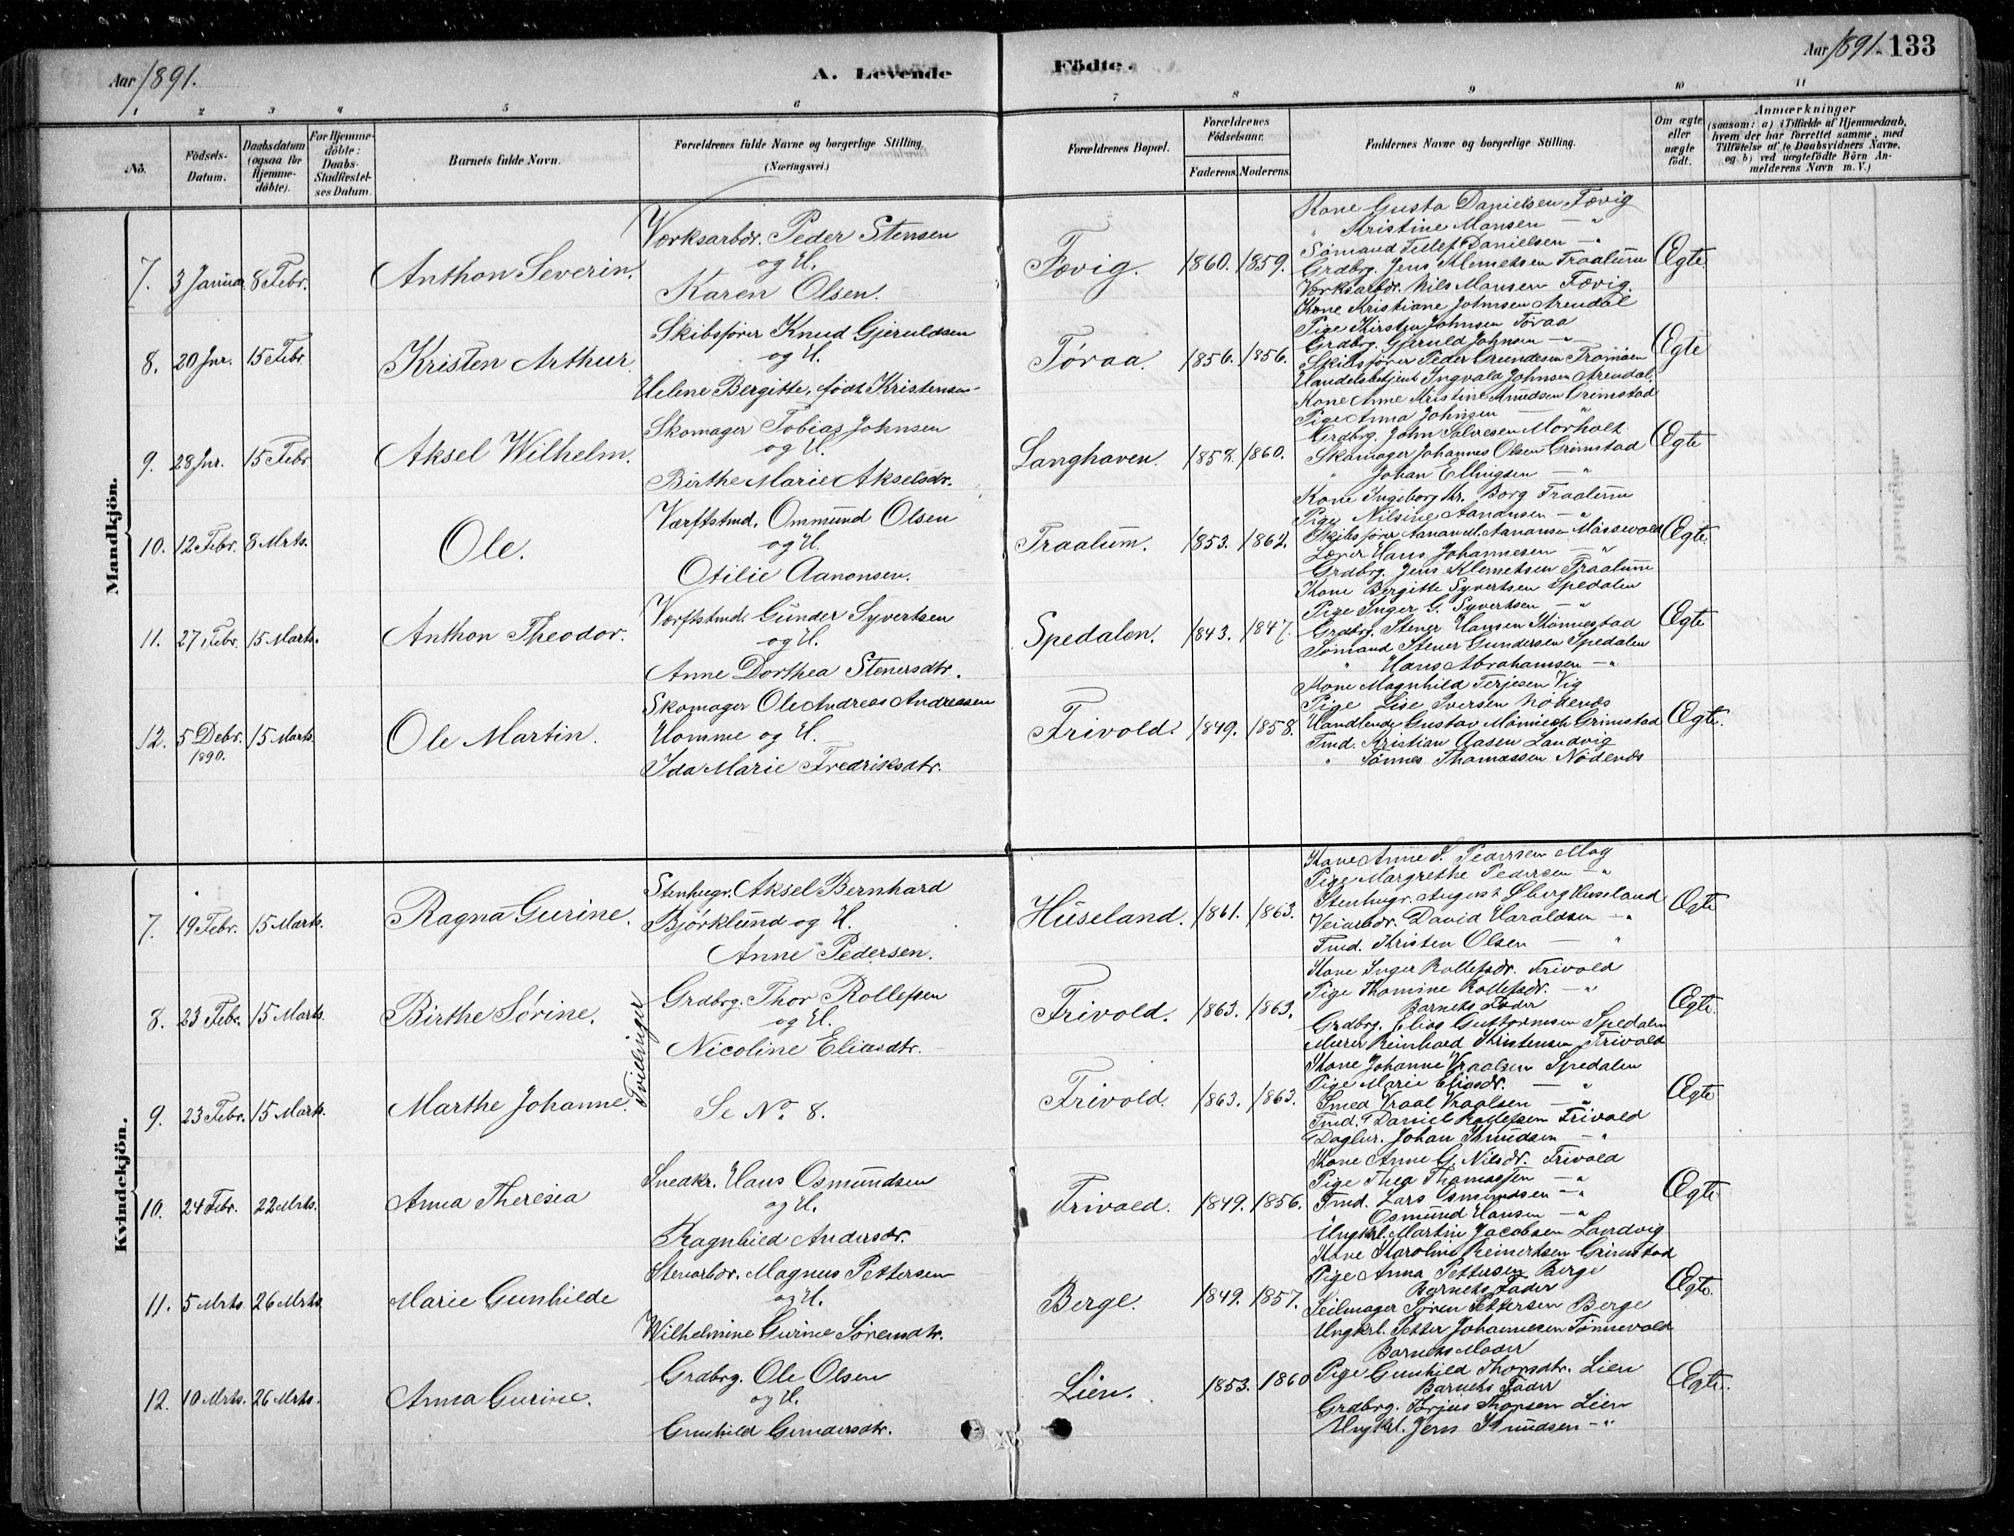 Aar 1891.
A. Levende
Födte.
Aar 1891. 133
1 2 3 4 5 6 7 8 9 10 11
No.
Födsels-Datum.
Daabsdatum (ogsaa for Hjemme-döbte).
For Hjemme-döbte: Daabs-Stadfæstel-ses Datum.
Barnets fulde Navn.
Forældrenes fulde Navne og borgerlige Stilling. (Næringsvei.)
Forældrenes Bopæl.
Forældrenes Födselsaar.
Faderens. Moderens.
Faddernes Navne og borgerlige Stilling.
Om ægte eller uægte födt.
Anmærkninger
(saasom: a) i Tilfælde af Hjemmedaab, hvem der har forrettet samme, med Tilföielse af to Daabsvidners Navne, og b) ved uægtefödte Börn An-melderens Navn m. V.)
Mandkjön.
7. 3 Januar 8 Febr. Anthon Severin.
Værksarbdr. Peder Stensen
og H.
Karen Olsen.
Fævig. 1860. 1859.
Kone Gusta Danielsen Fævig
" Kristine Monsen — "
Sømand Tellef Danielsen — "
Grdbrg. Jens Klemetsen Traalum
Værksarbdr. Nils Monsen Fævig.
Ægte
8. 20 Jnr. 15 Febr Kristen Arthur.
Skibsfører Knud Gjeruldsen
og H.
Helene Bergitte, født Kristensen
Tøraa. 1856. 1856.
Kone Kristiane Johnsen Arendal
Pige Kirsten Johnsen Tøraa
Grdbrg. Gjeruld Johnsen — "
Skibsfører Peder Gundesen Tromøen
Handelsbetjent Ingvald Johnsen Arendal.
Ægte
9. 28 Jnr. 15 Febr Aksel Wilhelm.
Skomager Tobias Johnsen
og H.
Birthe Marie Akselsdr.
Langhaven. 1858. 1860.
Kone Anne Kristine Knudsen Grimstad
Pige Anna Johnsen — "
Grdbrg. John Salvesen Morholt
Skomager Johannes Olsen Grimstad
" Johan Ellingsen — "
Ægte
10. 12 Febr. 8 Mrts. Ole.
Værftstmd. Ommund Olsen
og H.
Otilie Aanonsen.
Traalum. 1853. 1862.
Kone Ingeborg Kr. Borg Traalum
Pige Nilsine Aanonsen — "
Skibsfører Aanon Aanonsen Mæssevold
Lærer Hans Johannesen — "
Grdbrg. Jens Klemetsen Traalum
Ægte.
11. 27 Febr. 15 Marts. Anthon Theodor.
Værftstmd. Gunder Syvertsen
og H.
Anne Dorthea Stenersdtr.
Spedalen. 1843. 1847.
Kone Bergitte Syvertsen Spedalen
Pige Inger G. Syvertsen — "
Grdbrg. Stener Hansen Tønnestad
Sømand Stener Gundersen Spedalen
" Hans Abrahamsen — "
Ægte
12. 5 Debr. 1890. 15 Marts. Ole Martin.
Skomager Ole Andreas Andreasen
Homme og H.
Ida Marie Fredriksdtr.
Frivold. 1849. 1858.
Kone Magnhild Terjesen Vig
Pige Lise Iversen Nødenes
Handlende Gustav Mønnich Grimstad
Tmd. Kristian Aasen Landvig
" Tønnes Thomassen Nødenes
Ægte.
Kvindekjön.
7. 19 Febr. 15 Marts. Ragna Gurine.
Stenhugr. Aksel Bernhard
Bjørklund og H.
Anne Pedersen.
Huseland. 1861. 1863.
Kone Anne S. Pedersen Mog
Pige Margrethe Pedersen — "
Stenhugr. August Øberg Huseland
Veiarbdr. David Haraldsen — "
Tmd. Kristen Olsen — "
Ægte
8. 23 Febr. 15 Marts. Birthe Sørine.
Tvillinger
Grdbrg. Thor Rollefsen
og H.
Nicoline Eliasdtr.
Frivold. 1863. 1863.
Kone Inger Rollefsdr. Frivold
Pige Thomine Rollefsdr. — "
Barnets Fader
Grdbrg. Elias Guttormsen Spedalen
Murer Reinhard Kristensen Frivold
Ægte.
9. 23 Febr. 15 Marts. Marthe Johanne.
Se No. 8.
Frivold. 1863. 1863.
Kone Johanne Vraalsen Spedalen
Pige Marie Eliasdr. — "
Smed Vraal Vraalsen — "
Tmd. Daniel Rollefsen Frivold
Daglnr. Johan Knudsen — "
Ægte
10. 24 Febr. 22 Mrts. Anna Theresia
Snedkr. Hans Osmundsen
og H.
Ragnhild Andersdr.
Frivold. 1849. 1856.
Kone Anne G. Nilsdr. Frivold
Pige Thea Thomassen — "
Tmd. Lars Osmundsen — "
" Osmund Hansen — "
Ungkrl. Martin Jacobsen Landvig
Ægte
11. 5 Mrts. 26 Mrts. Marie Gunhilde
Stenarbdr. Magnus Pettersen
og H.
Wilhelmine Gurine Sørensdtr.
Berge. 1849. 1857.
Kone Karoline Reinertsen Grimstad
Pige Anna Pettersen Berge
Barnets Fader
Seilmager Søren Pettersen Berge
Ungkrl. Petter Johannesen Tønnevold
Ægte.
12. 10 Mrts. 26 Mrts. Anna Gurine.
Grdbrg. Ole Olsen
og H.
Gunhild Gundersdtr.
Lien. 1853. 1860
Barnets Moder
Pige Gunhild Thorsdtr. Lien
Barnets Fader
Grdbrg. Torjus Thorsen Lien
Ungkrl. Jens Knudsen — "
Ægte.